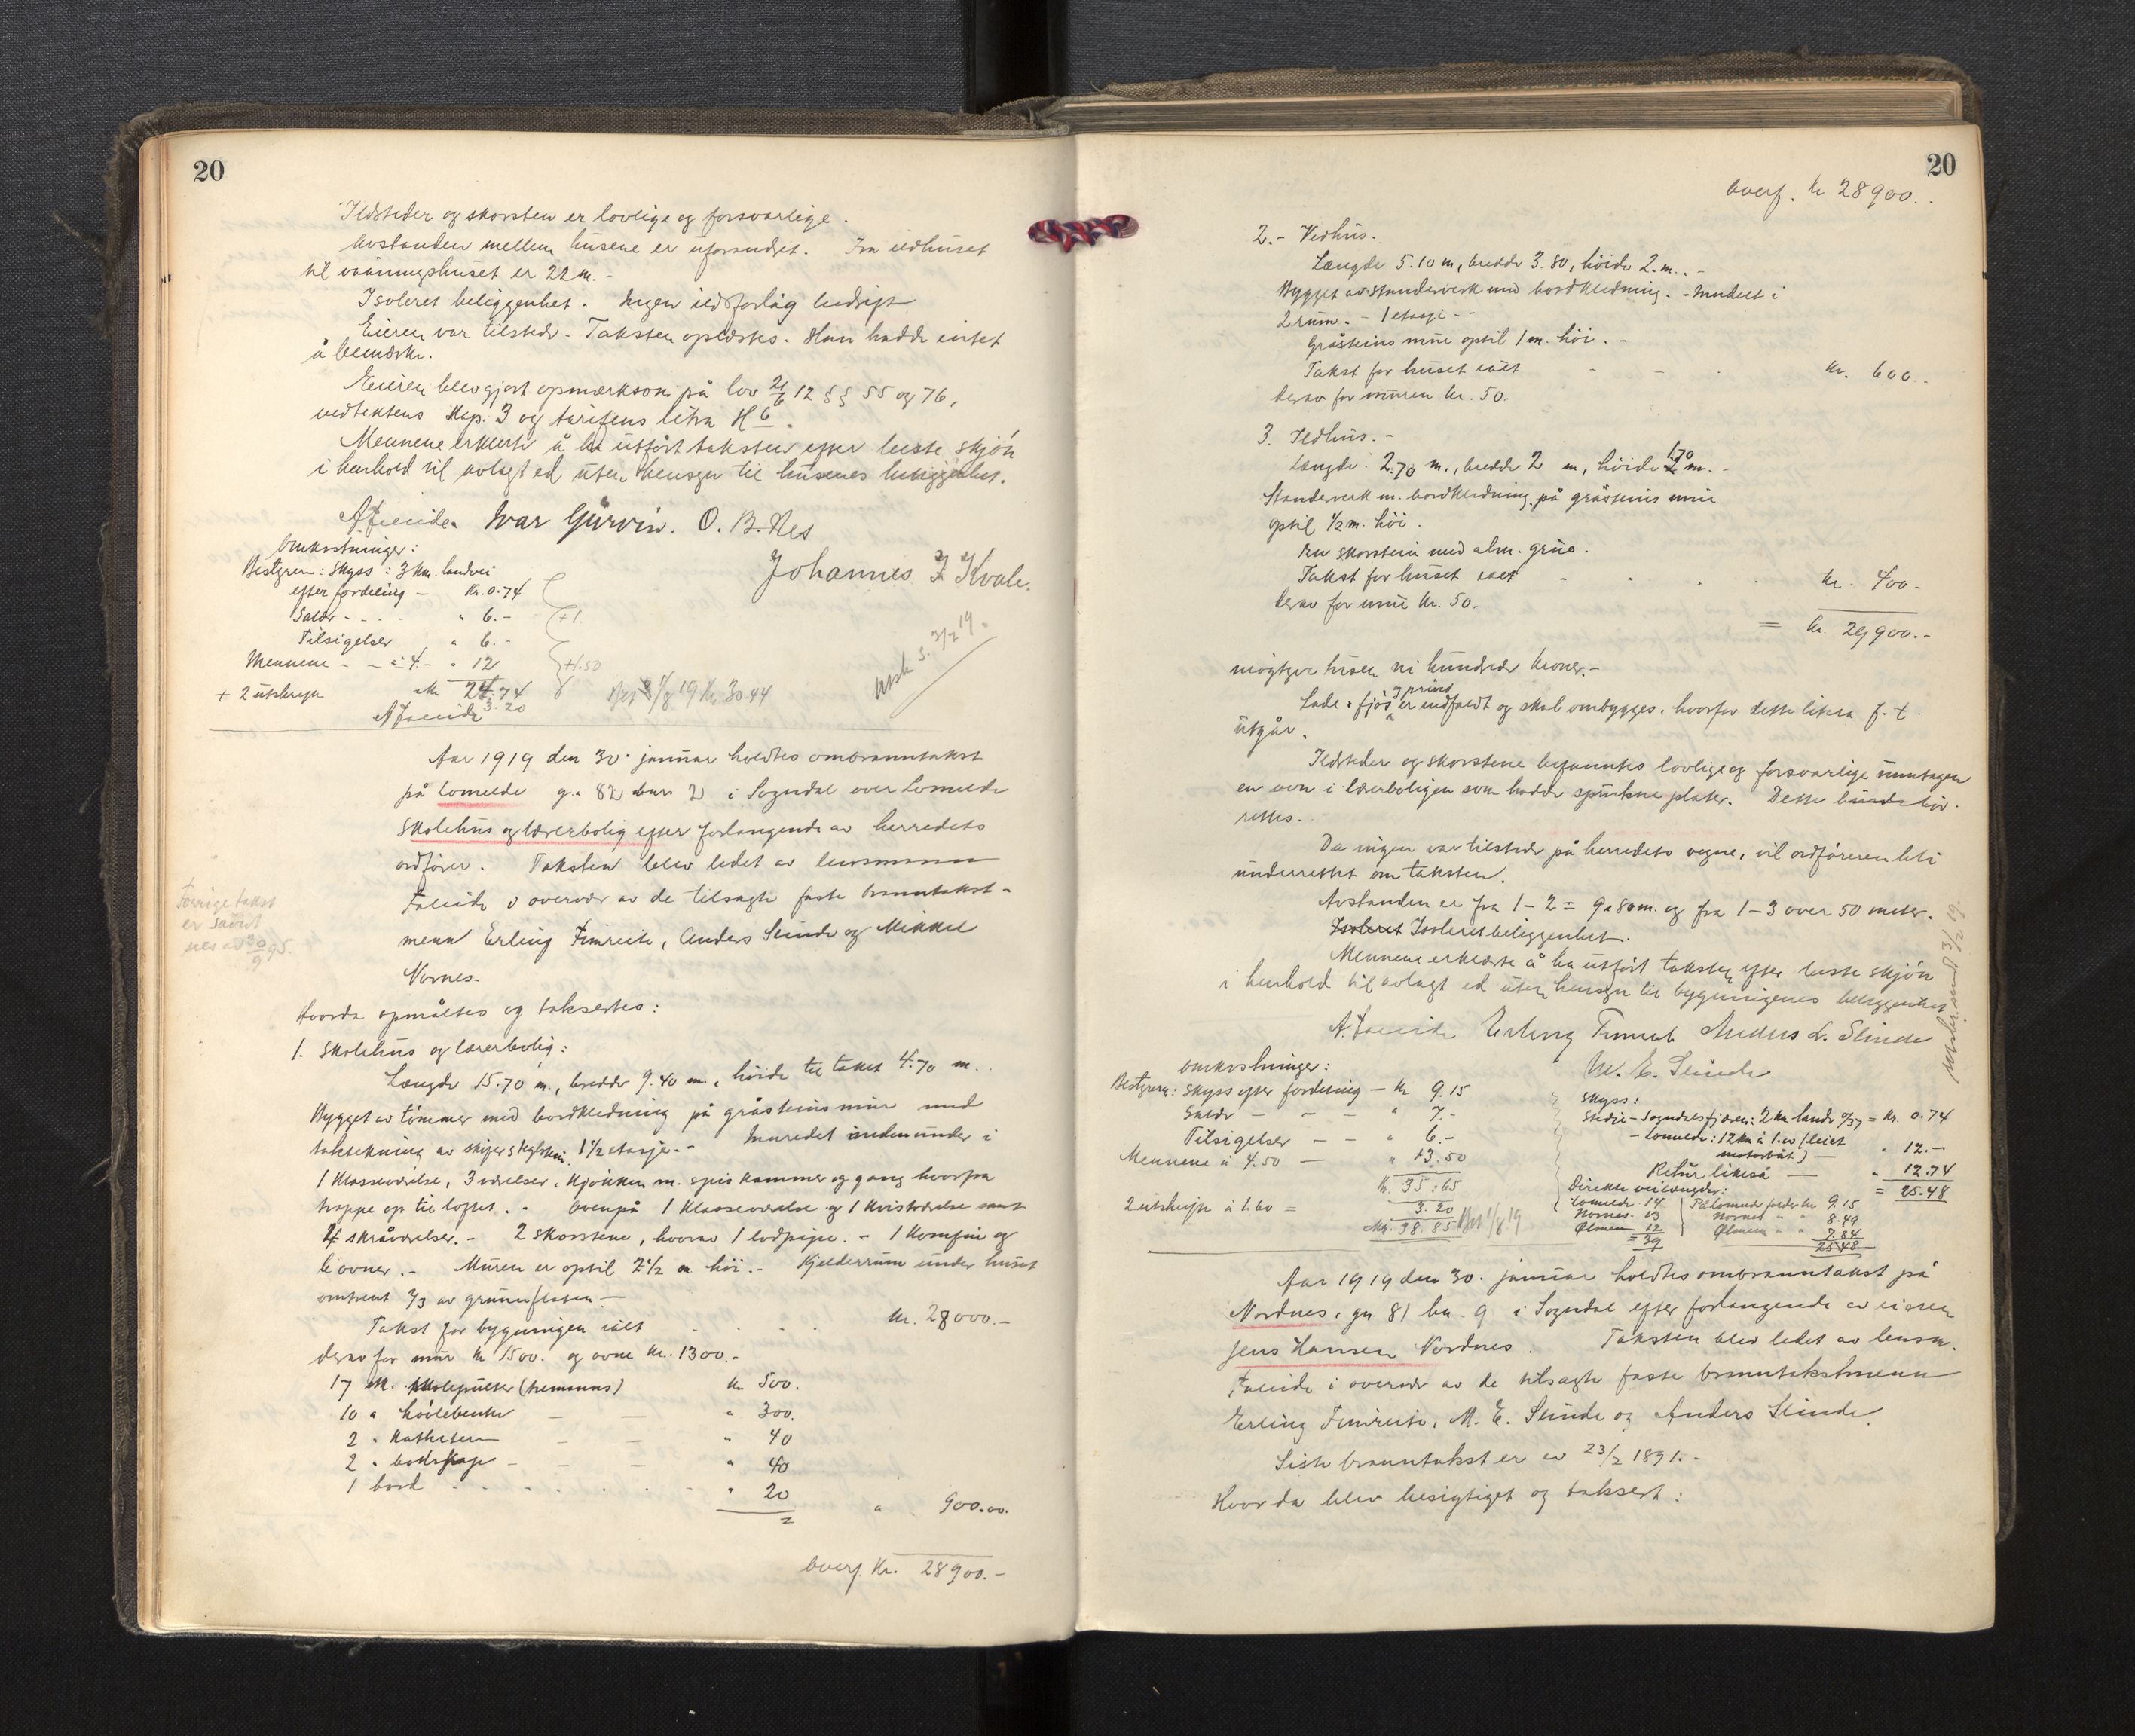 20
Ildsteder og skorsten er lovlige og forsvarlige.
Avstanden mellem husene er uforandret. Fra ildhuset
til vaaningshuset er 22 m. -
Isoleret beliggenhet. Ingen ildsfarlig bedrift
Eieren var tilstede - Taksten oplæstes. Han hadde intet
å bemerke.
Eieren blev gjort opmerksom på lov 21/6 12 §§ 55 og 76,
vedtektens Kap. 3 og tarifens litra H 6.
Mennene erklærte å ha utført taksten efter beste skjön
i henhold til avlagt ed uten hensyn til husenes beliggenhet.
A Faleide. Ivar Gurvin. O. B. Nes
Johannes J Kvale.
Omkostninger:
Bestyrer: Skyss: 3 km. landvei
efter fordeling - Kr. 0.74
Salær - - - " 6.-
Tilsigelser " 6.-
+1.
Mennene - - à 4.- " 12
+1.50
+ 2 utskrifter Kr. 24.74
3.20
A Faleide
Bet 1/8 19 Kr. 30.44
Utsk. s. 3/2 19.
Aar 1919 den 30. januar holdtes ombranntakst
på Lomelde g.. 82 bnr. 2 i Sogndal over Lomelde
skolehus og lærerbolig efter forlangende av herredets
ordfører. Taksten blev ledet av lensmann
Faleide i overvær av de tilsagte faste branntakst-
menn Erling Fimreite, Anders Slinde og Mikkel
Nornes.
Forrige takst
er samt
nes av 30/9 95.
Hvorda opmåltes og taksertes:
1. Skolehus og lærerbolig:
Længde 15.70 m., bredde 9.40 m., høide til taket 4.70 m.
Bygget av tömmer med bordklædning på gråsteinsmur med
taktekning av skifer skifstein. 1 1/2 etasje. - Innredet nedenunder i
1 klasseværelse, 3 værelser, kjøkken m. spiskammer og gang hvorfra
trappe op til loftet. - Ovenpå 1 klasseværelse og 1 kvistværelse samt
4 skråværelser. - 2 skorstene, hvorav 1 lodpipe. - 1 komfur og
6 ovner. - Muren er optil 2 1/2 m høi. - Kjelderrum under huset
omtrent 2/3 av grunnflaten. -
Takst for bygningen ialt Kr. 28000.-
derav for mur Kr 1500. og ovne Kr. 1300.-
17 stk. skolepulter (tremanns) Kr 500.
10 " høilebenke - - " 300.
2 " Katheter - - " 40
2 " bokskape - - - " 40
1 bord " 20
= " 900.00.
Overf. Kr. 28900.-
20
Overf. Kr 28900..
2. - Vedhus.
Længde 5.10 m, bredde 3.80, høide 2.m. . -
Bygget av standerverk med bordklædning. - Inndelt i
2 rum. - 1 etasje - -
Gråsteins mur optil 1 m. höi. -
Takst for huset ialt Kr. 600..
derav for muren Kr. 50.
3. Ildhus. -
Længde: 2.70 m., bredde 2 m, höide 1.70 m. -
Standerverk m. bordklædning på gråsteins mur
optil 1/2 m. höi.
En skorstein med alm. grue.
Takst for huset ialt Kr. 400 -
derav for mur Kr. 50.
= Kr. 29900.-
niogtyve tusen ni hundrede kroner. -
Lade, fjös og privet er nedfaldt og skal ombygges, hvorfor dette likesa f. t.
utgår.
Ildsteder og skorstene befanntes lovlige og forsvarlige unntagen
en ovn i lærerboligen som hadde sprukne plater. Dette burde bör
rettes.
Da ingen var tilstede på herredets vegne, vil ordföreren bli
underrettet om taksten.
Avstanden er fra 1-2 = 9.80 m. og fra 1-3 over 50 meter.
Isoleret Isoleret beliggenhet.
Mennene erklærte å ha utført taksten efter beste skjön
i henhold til avlagt ed uten hensyn til bygningenes beliggenhet.
A. Faleide Erling Fimreit Anders L. Slinde
M. E. Slinde
Omkostninger:
Bestyrer: Skyss efter fordeling - Kr 9.15
Salær - - - " 7.-
Tilsigelser - - " 6.-
Mennene à 4.50 - " 13.50
K. 35.65
2 utskrifter à 1.60 = 3.20
Kr. 38.85 Bet 1/8 19
Skyss:
Stedje - Sogndalsfjæren: 2 km. landv. 0/37 = Kr. 0.74
- Lomelde: 12 km à 1.00 (leiet
motorbåt) - " 12.-
Retur likeså - " 12.74
= 25.48
Direkte veilængder:
Lomelde - 14
Nornes - 13
Ølmeim 12
= 39
På Lomelde falder Kr 9.15
Nornes " " 8.49
Ølmeim " " 7.84
25.48
Aar 1919 den 30. januar holdtes ombranntakst på
Nordnes, gn 81 bn. 9 i Sogndal efter forlangende av eieren
Jens Hansen Nordnes. Taksten blev ledet av lensm.
Faleide i overvær av de tilsagte faste branntakstmenn
Erling Fimreite, M. E. Slinde og Anders Slinde.
Siste branntakst er av 23/2 1891. -
Hvor da blev besigtiget og taksert: